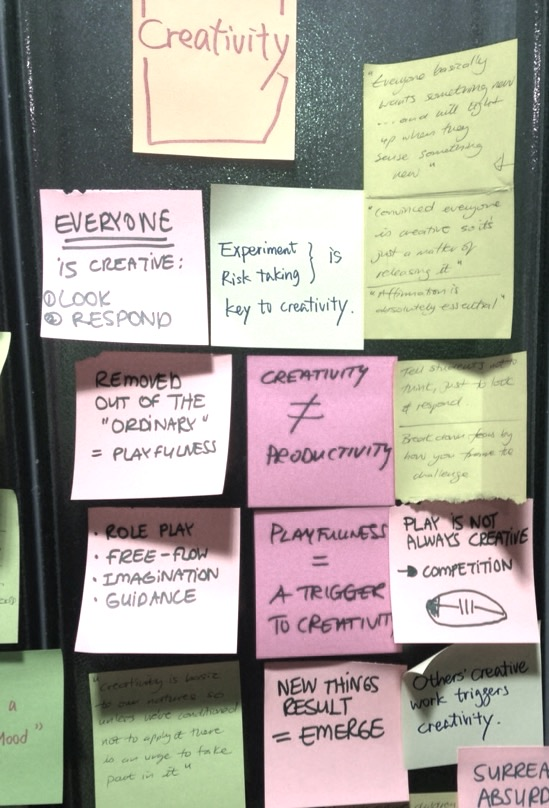 Creativity
"Everyone basically
wants something new
... and will light
up when they
sense something
new"
EVERYONE
IS CREATIVE:
① LOOK
② RESPOND
Experiment
Risk taking } is
key to creativity.
"Convinced everyone
is creative so it's
just a matter of
releasing it"
"Affirmation is
absolutely essential"
REMOVED
OUT OF THE
"ORDINARY"
= PLAYFULNESS
CREATIVITY
≠
PRODUCTIVITY
Tell students not to
think, just to look
& respond
Break down fear by
how you frame the
challenge
• ROLE PLAY
• FREE-FLOW
• IMAGINATION
• GUIDANCE
PLAYFULLNESS
=
A TRIGGER
TO CREATIVIT
PLAY IS NOT
ALWAYS CREATIVE
→ COMPETITION
a
Mood"
"Creativity is basic
to our natures so
unless we're conditioned
not to apply it there
is an urge to take
part in it"
NEW THINGS
RESULT
= EMERGE
Others' creative
work triggers
creativity.
SURREA
ABSURD